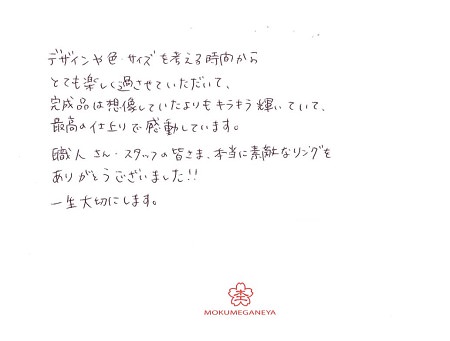 デザインや色・サイズを考える時間から
とても楽しく過させていただいて、
完成品は想像していたよりもキラキラ輝いていて、
最高の仕上りで感動しています。
職人さん・スタッフの皆さま、本当に素敵なリングを
ありがとうございました!!
一生大切にします。
MOKUMEGANEYA